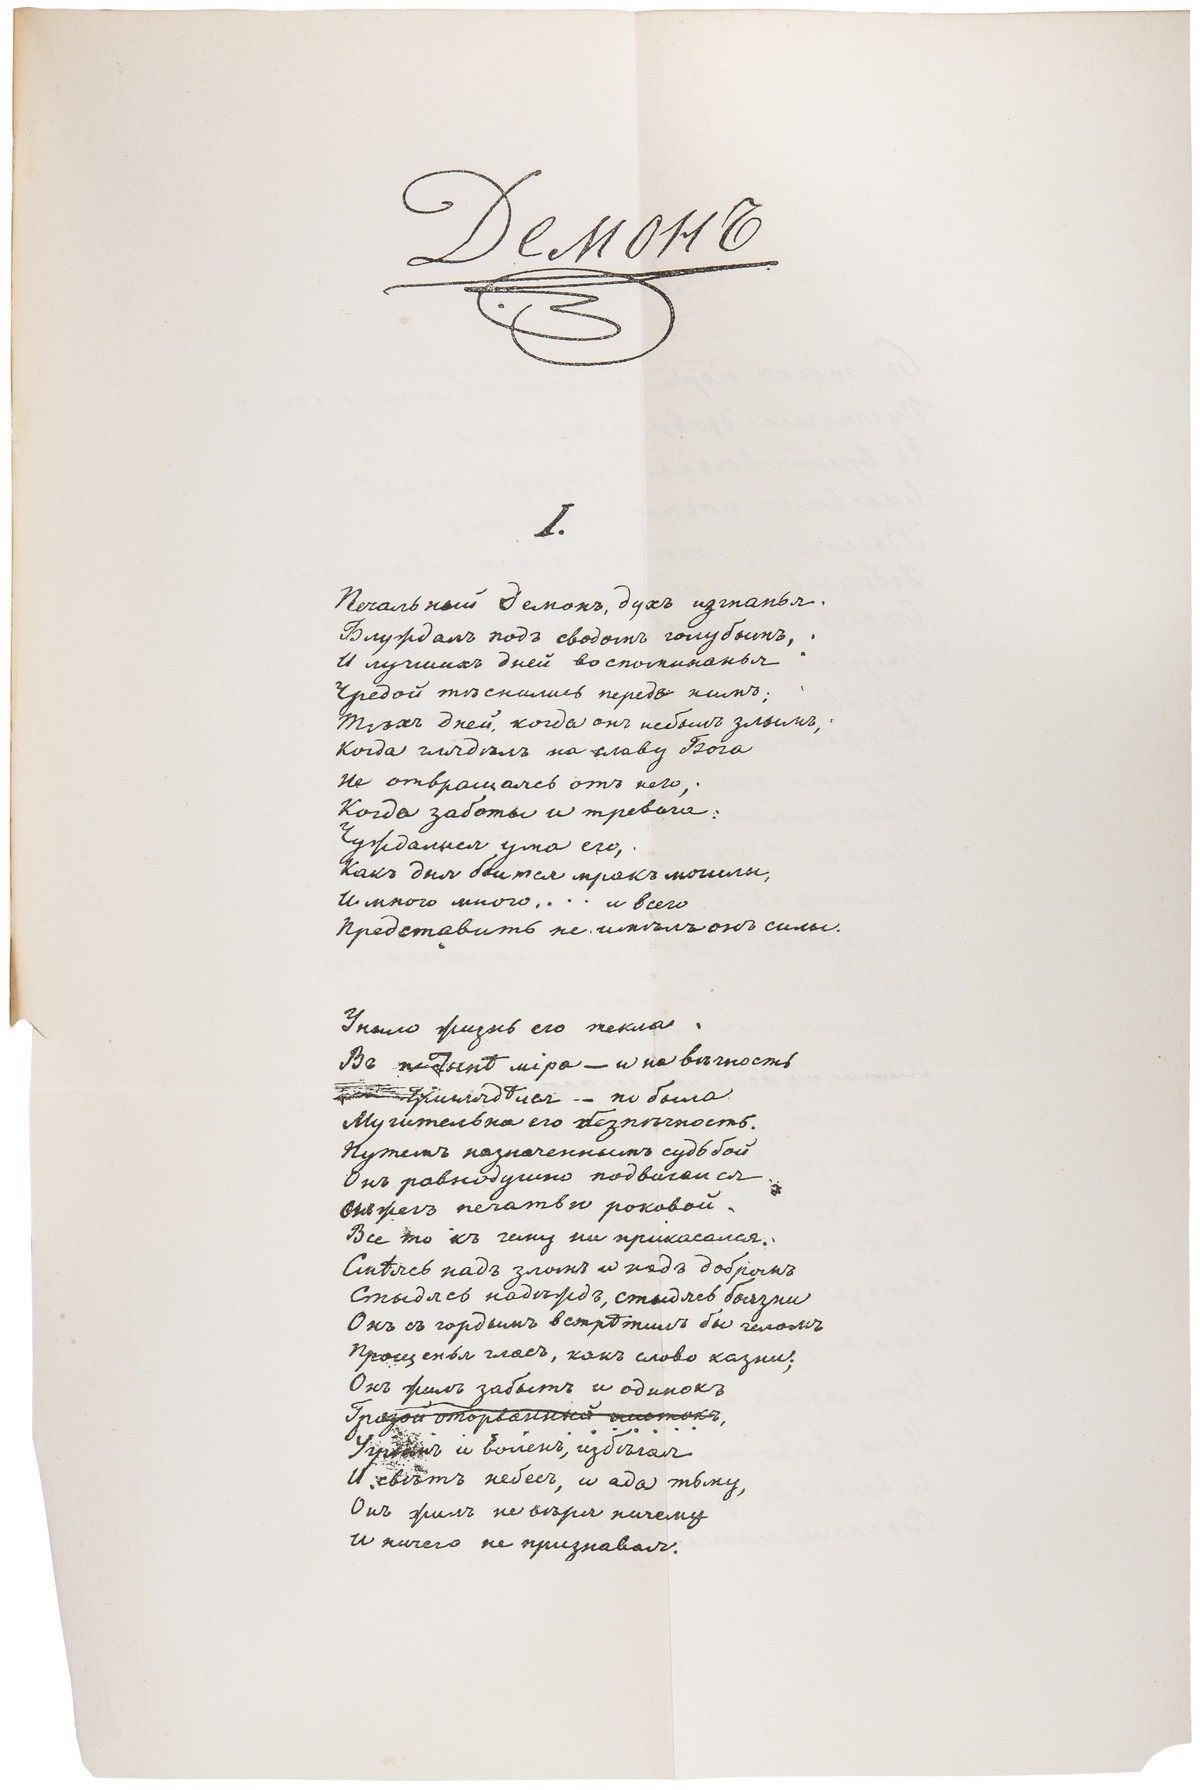 Демонъ
I.
Печальный Демонъ, духъ изгнанья.
Блуждалъ подъ сводомъ голубымъ,
И лучшихъ дней воспоминанья
Чредой тѣснились передъ нимъ;
Тѣхъ дней, когда онъ небылъ злымъ,
Когда глядѣлъ на славу Бога
Не отвращаясь отъ него,
Когда заботы и тревога
Чуждалися ума его,
Какъ дня боится мракъ могилы,
И много много.... и всего
Представить не имѣлъ онъ силы.
Уныло жизнь его текла.
Въ пустынѣ міра — и на вѣчность
приглядѣлся — но была
Мучительна его безпечность.
Путемъ назначеннымъ судьбой
Онъ равнодушно подвигался
Онъ жегъ печатью роковой.
Все то къ чему ни прикасался.
Смѣясь надъ зломъ и надъ добромъ
Стыдясь надеждъ, стыдясь боязни
Онъ съ гордымъ встрѣтилъ бы челомъ
Прощенья гласъ, какъ слово казни;
Онъ жилъ забытъ и одинокъ
Грозой оторванный листокъ,
Угрюмъ и воленъ, избѣгая
И свѣтъ небесъ, и ада тьму,
Онъ жилъ не вѣря ничему
И ничего не признавая.